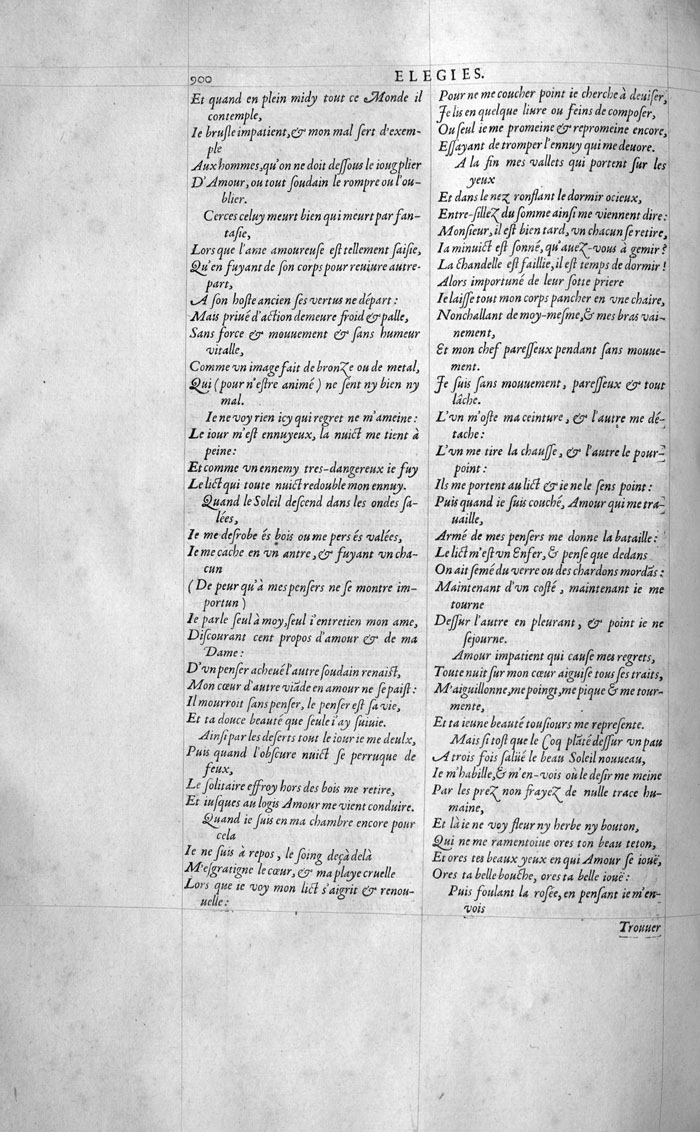 900
ELEGIES.
Et quand en plein midy tout ce Monde il
contemple,
Ie brusle impatient, & mon mal sert d'exem-
ple
Aux hommes, qu'on ne doit dessous le ioug plier
D'Amour, ou tout soudain le rompre ou l'ou-
blier.
Certes celuy meurt bien qui meurt par fan-
tasie,
Lors que l'ame amoureuse est tellement saisie,
Qu'en fuyant de son corps pour reuiure autre-
part,
A son hoste ancien ses vertus ne départ:
Mais priué d'action demeure froid & palle,
Sans force & mouuement & sans humeur
vitalle,
Comme vn image fait de bronze ou de metal,
Qui (pour n'estre animé) ne sent ny bien ny
mal.
Ie ne voy rien icy qui regret ne m'ameine:
Le iour m'est ennuyeux, la nuict me tient à
peine:
Et comme vn ennemy tres-dangereux ie fuy
Le lict qui toute nuict redouble mon ennuy.
Quand le Soleil descend dans les ondes sa-
lées,
Ie me desrobe és bois ou me pers és valées,
Ie me cache en vn antre, & fuyant vn cha-
cun
(De peur qu'à mes pensers ne se montre im-
portun)
Ie parle seul à moy, seul i'entretien mon ame,
Discourant cent propos d'amour & de ma
Dame:
D'vn penser acheué l'autre soudain renaist,
Mon cœur d'autre viãde en amour ne se paist:
Il mourroit sans penser, le penser est sa vie,
Et ta douce beauté que seule i'ay suiuie.
Ainsi par les deserts tout le iour ie me deulx,
Puis quand l'obscure nuict se perruque de
feux,
Le solitaire effroy hors des bois me retire,
Et iusques au logis Amour me vient conduire.
Quand ie suis en ma chambre encore pour
cela
Ie ne suis à repos, le soing deçà delà
M'esgratigne le cœur, & ma playe cruelle
Lors que ie voy mon lict s'aigrit & renou-
uelle:
Pour ne me coucher point ie cherche à deuiser,
Ie lis en quelque liure ou feins de composer,
Ou seul ie me promeine & repromeine encore,
Essayant de tromper l'ennuy qui me deuore.
A la fin mes vallets qui portent sur les
yeux
Et dans le nez ronflant le dormir ocieux,
Entre-sillez du somme ainsi me viennent dire:
Monsieur, il est bien tard, vn chacun se retire,
Ia minuict est sonné, qu'auez-vous à gemir?
La chandelle est faillie, il est temps de dormir!
Alors importuné de leur sotte priere
Ie laisse tout mon corps pancher en vne chaire,
Nonchallant de moy-mesme, & mes bras vai-
nement,
Et mon chef paresseux pendant sans mouue-
ment.
Ie suis sans mouuement, paresseux & tout
lâche.
L'vn m'oste ma ceinture, & l'autre me dé-
tache:
L'vn me tire la chausse, & l'autre le pour-
point:
Ils me portent au lict & ie ne le sens point:
Puis quand ie suis couché, Amour qui me tra-
uaille,
Armé de mes pensers me donne la bataille:
Le lict m'est vn Enfer, & pense que dedans
On ait semé du verre ou des chardons mordãs:
Maintenant d'vn costé, maintenant ie me
tourne
Dessur l'autre en pleurant, & point ie ne
sejourne.
Amour impatient qui cause mes regrets,
Toute nuit sur mon cœur aiguise tous ses traits,
M'aiguillonne, me poingt, me pique & me tour-
mente,
Et ta ieune beauté tousiours me represente.
Mais si tost que le Coq plãté dessur vn pau
A trois fois salüé le beau Soleil nouueau,
Ie m'habille, & m'en-vois où le desir me meine
Par les prez non frayez de nulle trace hu-
maine,
Et là ie ne voy fleur ny herbe ny bouton,
Qui ne me ramentoiue ores ton beau teton,
Et ores tes beaux yeux en qui Amour se iouë,
Ores ta belle bouche, ores ta belle iouë:
Puis foulant la rosée, en pensant ie m'en-
vois
Trouuer